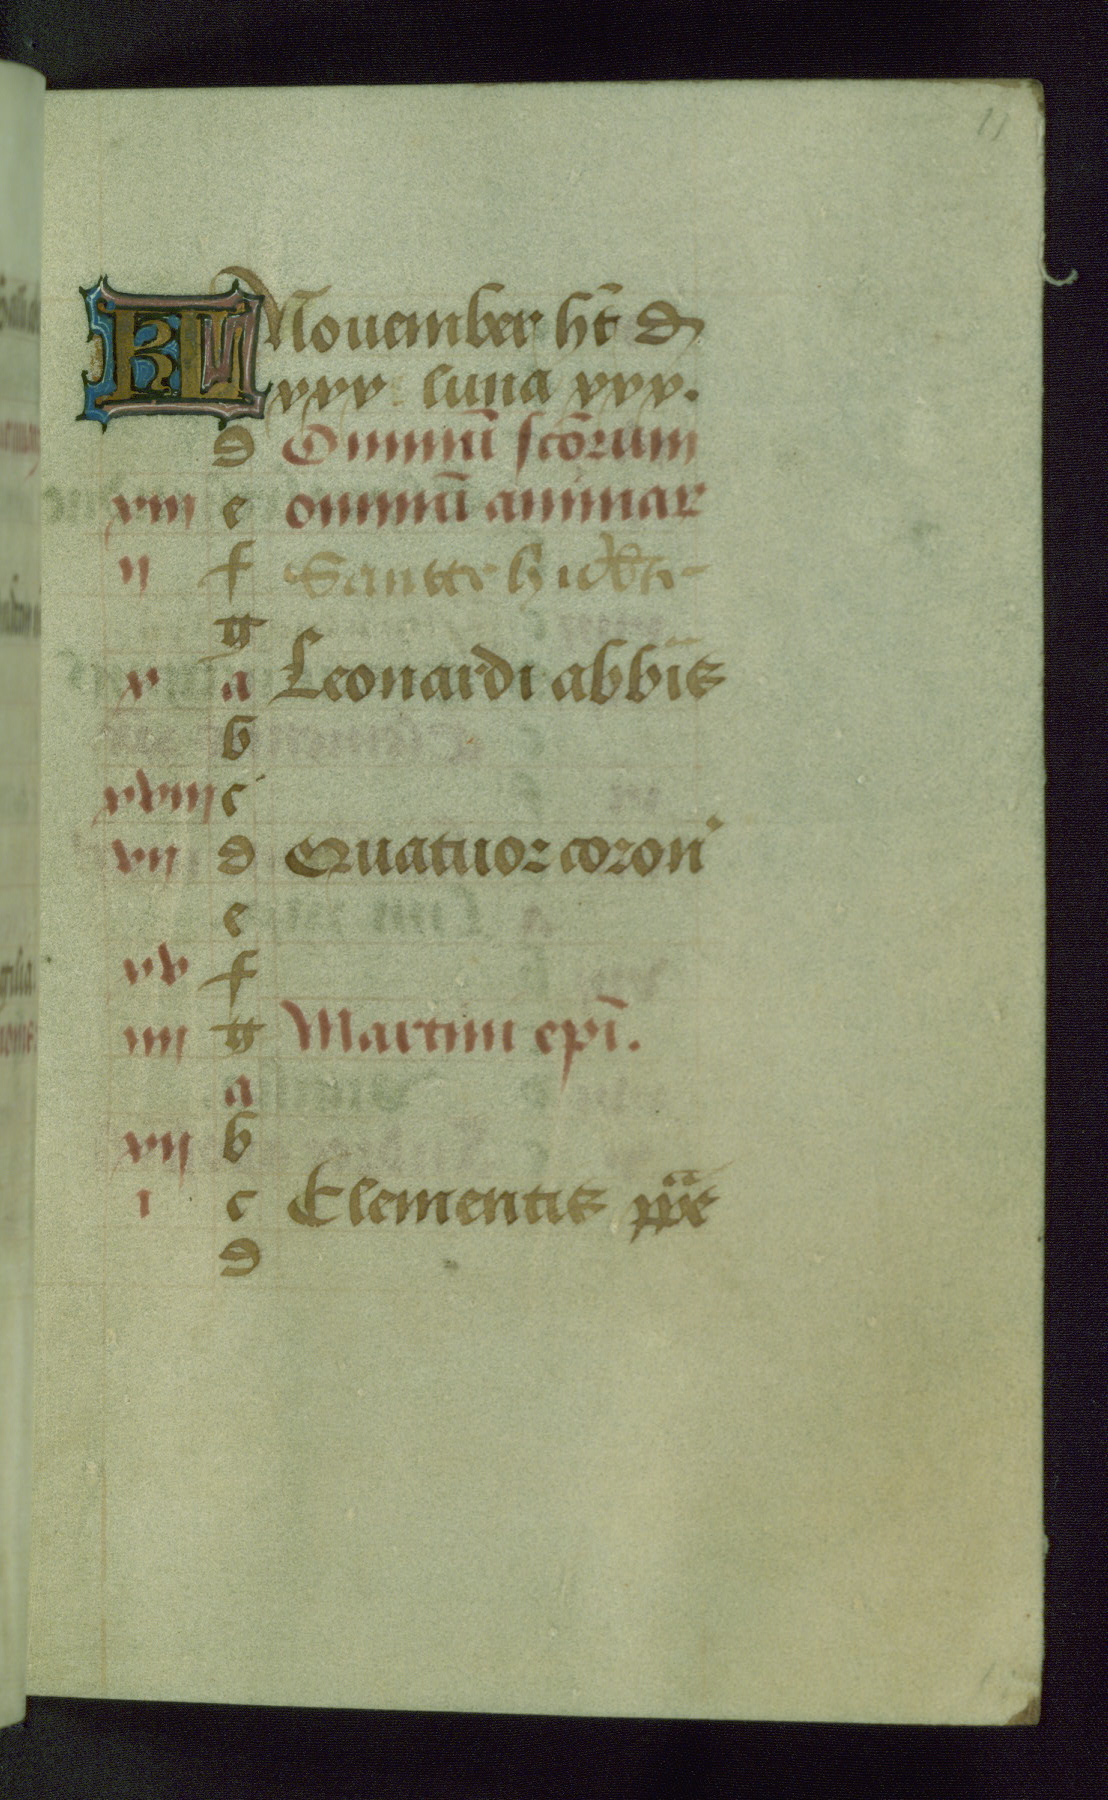 11
KL Nouember ht̄ d
xxx luna xxx.
d Omniū sco̅rum
xiii e omniū animar
ii f Santte hub̄te
g
x a Leonardi abbis̄
b
xviii c
vii d Quatuor coron̄
e
xv f
iiii g Martini epi̅.
a
xii b
i c Clementis
d